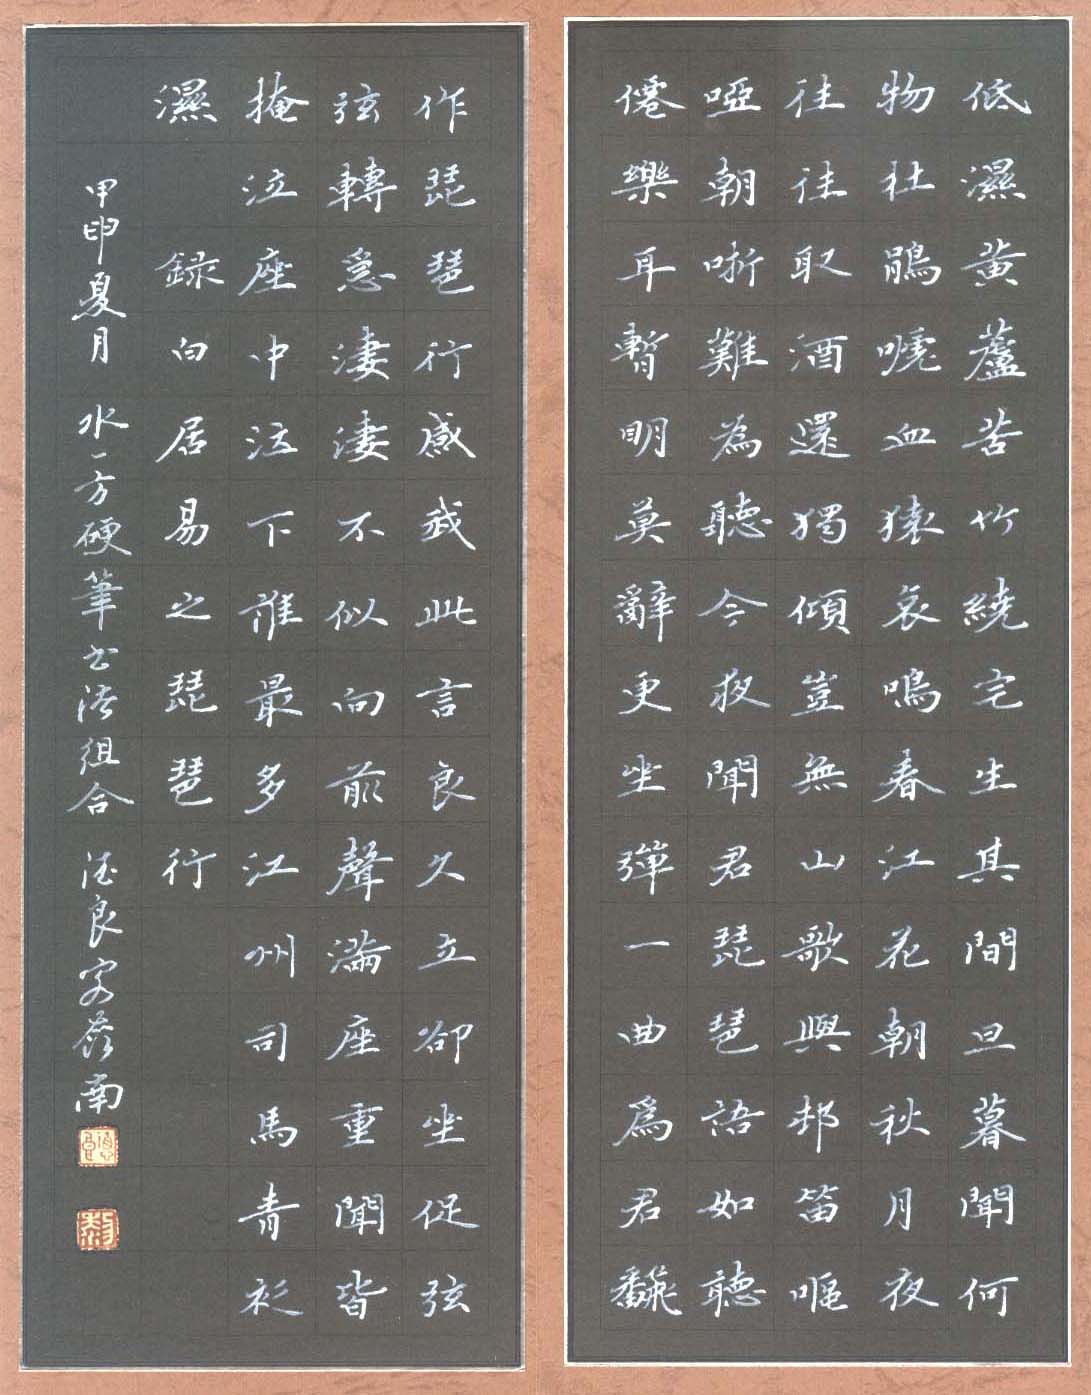 低濕黃蘆苦竹繞宅生其間旦暮聞何
物杜鵑嗁血猿哀鳴春江花朝秋月夜
往往取酒還獨傾豈無山歌與邨笛嘔
啞朝哳難為聽今夜聞君琵琶語如聽
僊樂耳暫明莫辭更坐彈一曲爲君飜
作琵琶行感我此言良久立卻坐促弦
弦轉急淒淒不似向前聲滿座重聞皆
掩泣座中泣下誰最多江州司馬青衫
濕 録白居易之琵琶行
甲申夏月 水一方硬筆书法組合 德良客嶺南